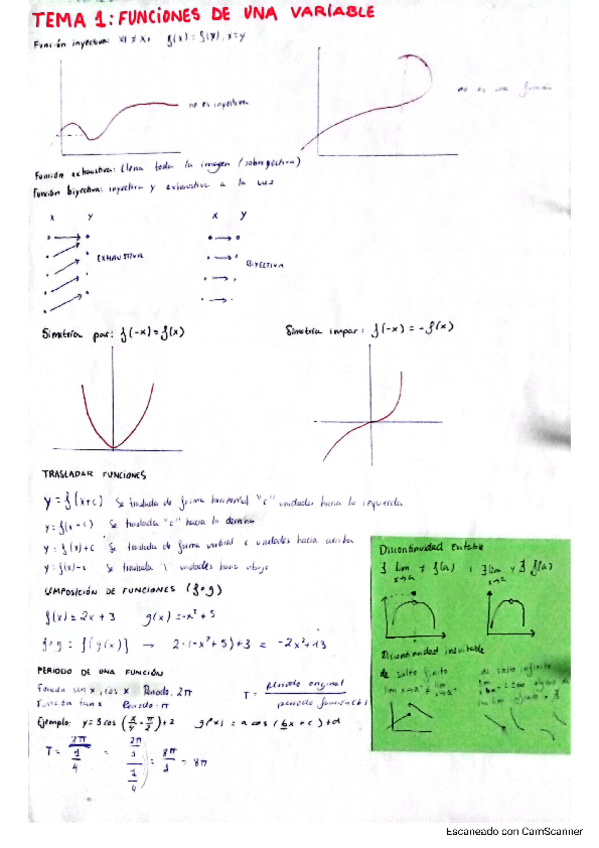 TEMA 1: FUNCIONES DE UNA VARIABLE
Función inyectiva: f(x) = f(y), x=y
no es inyectiva
no es una
Función exhaustiva: Llena toda la imagen (sobreyectiva)
Función biyectiva: inyectiva y exhaustiva a la vez
X Y
X Y
EXHAUSTIVA
BIYECTIVA
Simetría par: f(-x) = f(x)
Simetría impar: f(-x) = -f(x)
TRASLADAR FUNCIONES
y = f(x+c) Se traslada de forma horizontal "c" unidades hacia la izquierda
y = f(x-c) Se traslada "c" hacia la derecha
y = f(x)+c Se traslada de forma vertical c unidades hacia arriba
y = f(x)-c Se traslada unidades hacia abajo
COMPOSICIÓN DE FUNCIONES (f∘g)
f(x) = 2x + 3 g(x) = -x² + 5
f∘g : f(g(x)) → 2·(-x²+5)+3 = -2x²+13
PERIODO DE UNA FUNCIÓN
Función sen x, cos x Periodo: 2π
T = periodo original / periodo
Función tan x Periodo: π
Ejemplo: y = 3 cos (x/4 - π/2) + 2 g(x) = a cos (bx + c) + d
T = 2π / (1/4) = (2π/1) / (1/4) = 8π/1 = 8π
Discontinuidad Evitable
∃ lim x→a ≠ f(a) ; ∃ lim x→a y ∄ f(a)
Discontinuidad inevitable
de salto finito
de salto infinito
Escaneado con CamScanner